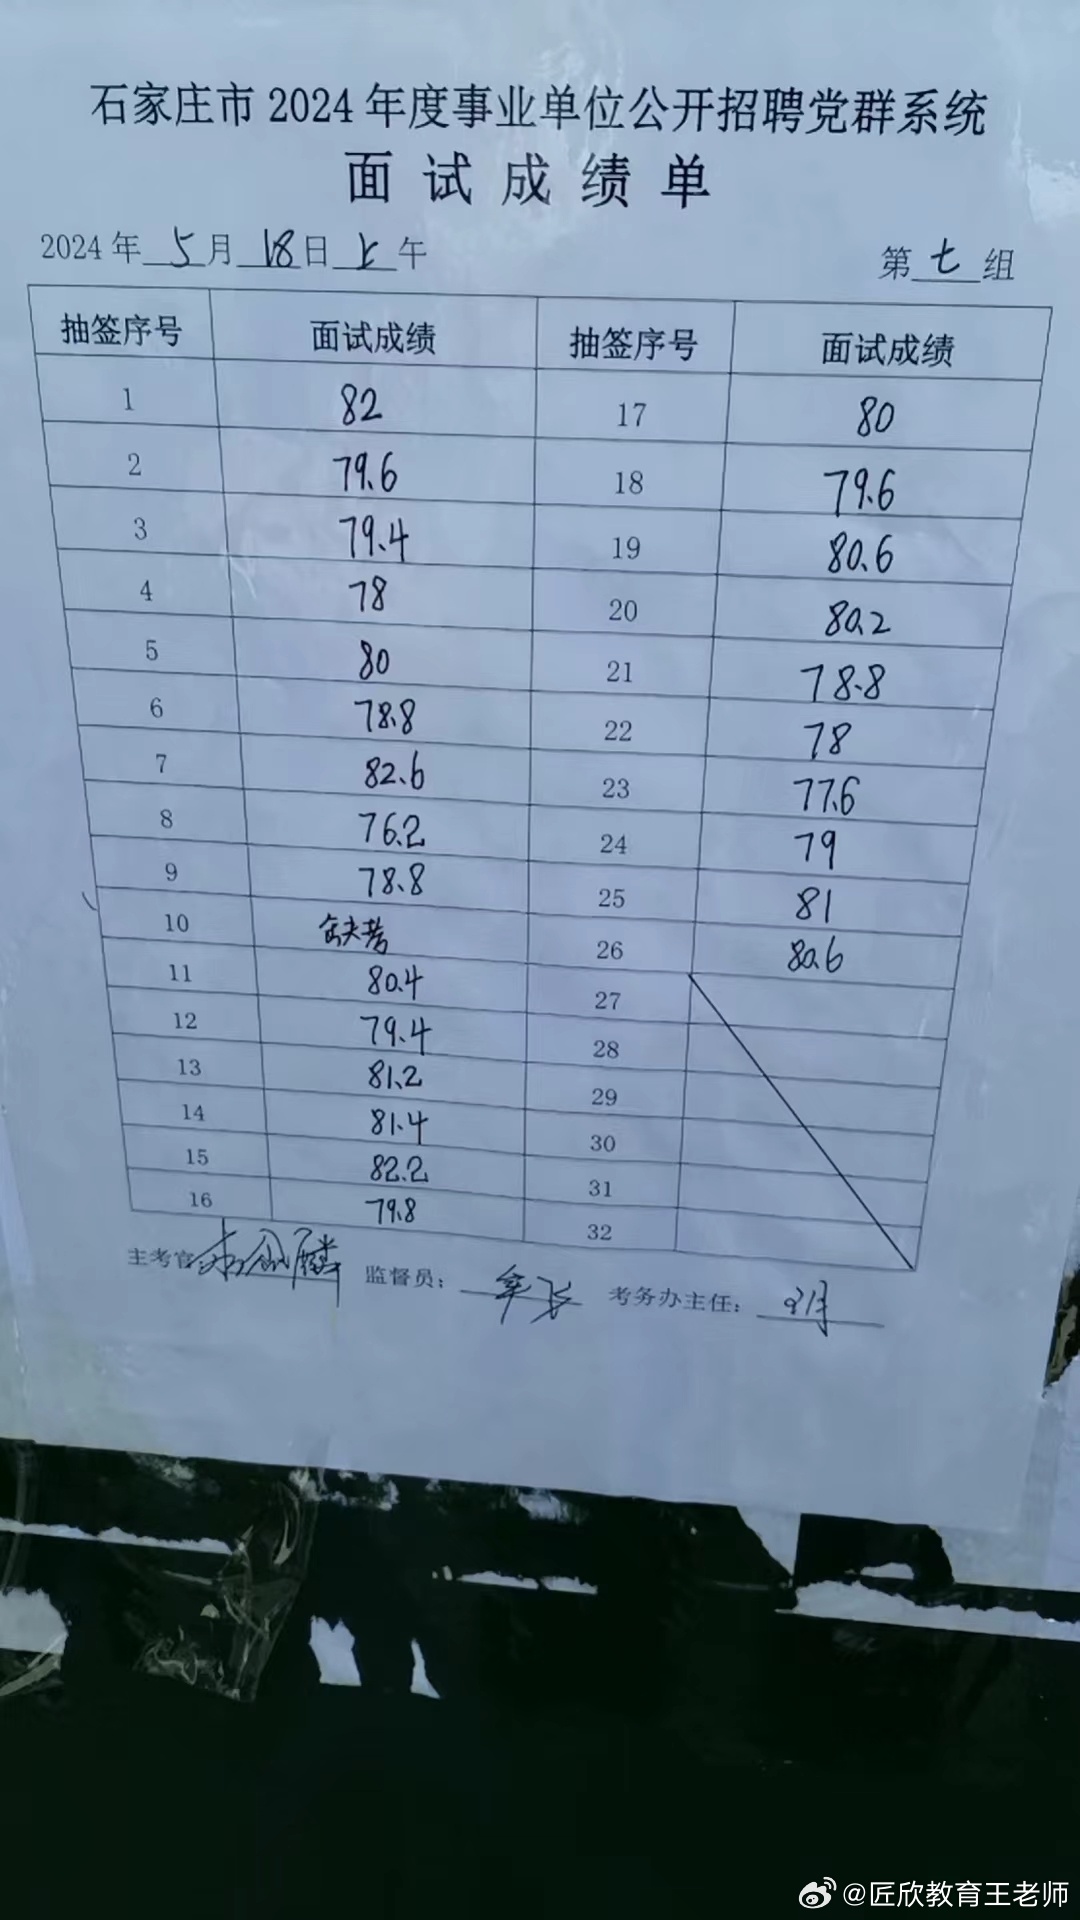 石家庄市2024年度事业单位公开招聘党群系统
面试成绩单
2024年5月18日上午 第七组
抽签序号 面试成绩 抽签序号 面试成绩
1 82 17 80
2 79.6 18 79.6
3 79.4 19 80.6
4 78 20 80.2
5 80 21 78.8
6 78.8 22 78
7 82.6 23 77.6
8 76.2 24 79
9 78.8 25 81
10 缺考 26 80.6
11 80.4 27
12 79.4 28
13 81.2 29
14 81.4 30
15 82.2 31
16 79.8 32
主考官 监督员： 考务办主任：
@匠欣教育王老师